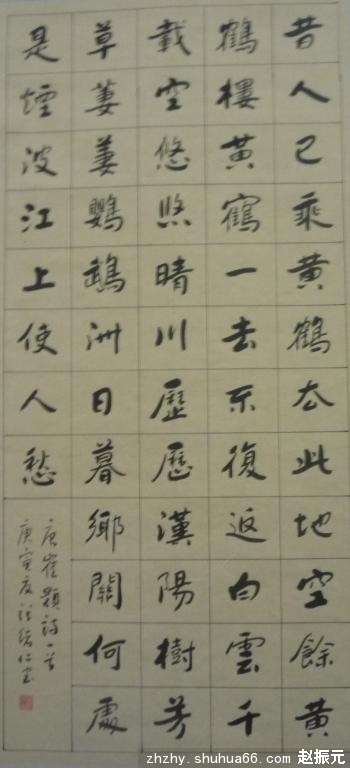 昔人已乘黄鶴去此地空餘黄
鶴樓黄鶴一去不復返白雲千
載空悠悠晴川歷歷漢陽樹芳
草萋萋鸚鵡洲日暮鄉關何處
是煙波江上使人愁
唐崔顥詩一首
庚寅夏
zhzhy.shuhua66.com 赵振元